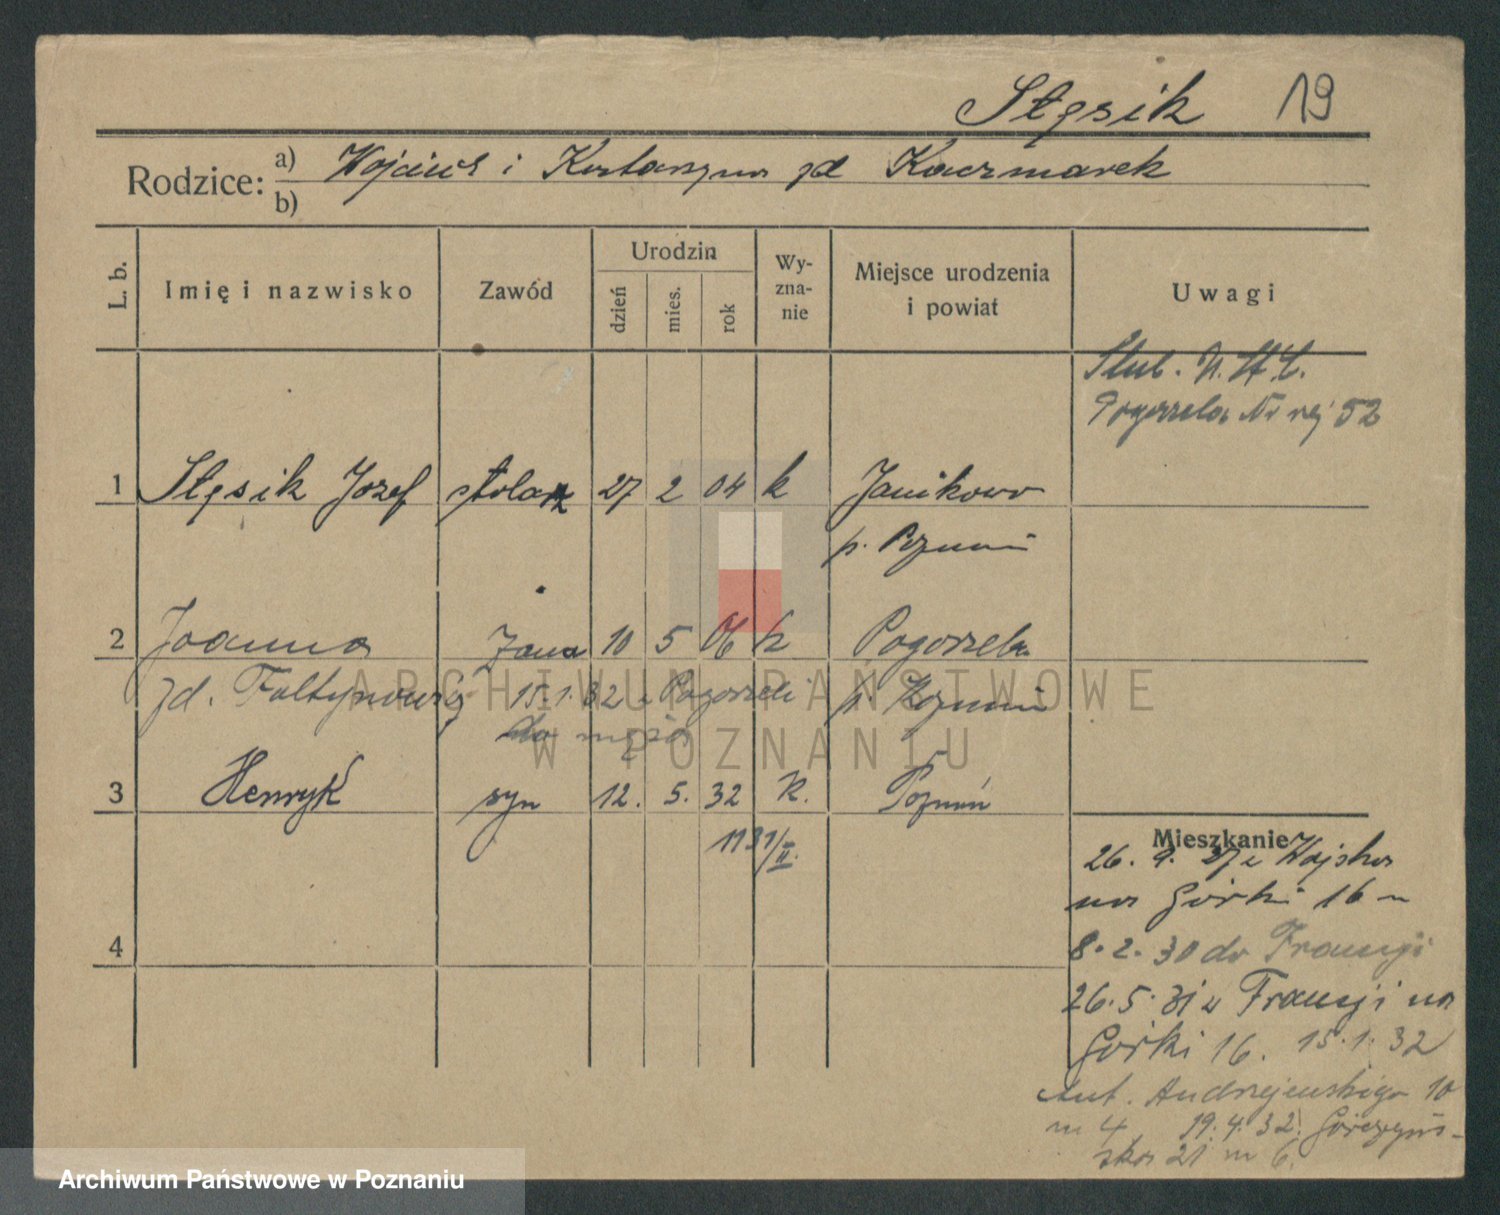 Stęsik 19
Rodzice: a) Wojciech i Katarzyna zd Kaczmarek
b)
L. b. Imię i nazwisko Zawód Urodzin dzień mies. rok Wy-zna-nie Miejsce urodzenia i powiat Uwagi
Ślub.
Pogorzela Nr rej 52
1 Stęsik Józef stolarz 27 2 04 k Janikowo
p. Poznań
2 Joanna żona 10 5 06 k Pogorzela
zd. Foltynowicz 15.1.32 z Pogorzeli p.
do męża
3 Henryk syn 12. 5. 32 k. Poznań
Mieszkanie
26. 9. 27 z Wojska
na Górki 16
8.2.30 do Francji
26.5.31 z Francji na
Górki 16. 15.1.32
Ant. Andrzejewskiego 10
m 4 19.4.32. Górczyń-
ska 21 m 6.
ARCHIWUM PAŃSTWOWE
W POZNANIU
Archiwum Państwowe w Poznaniu